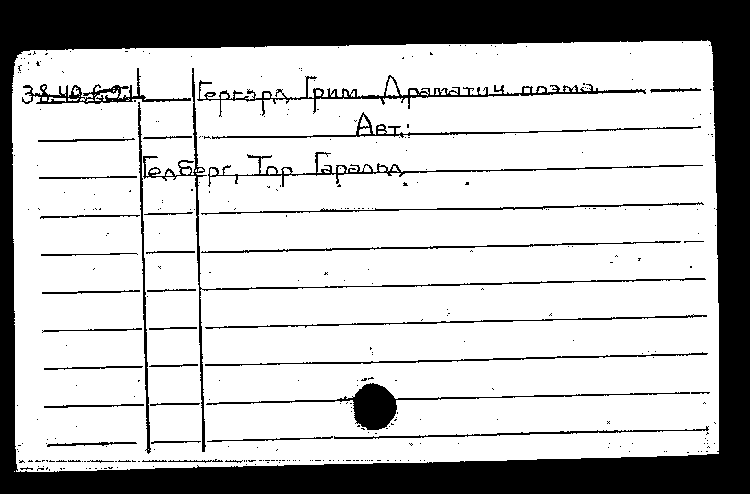 38.40.6.91 Гергард Грим. Драматич. поэма.
Авт.:
Гедберг, Тор Гаральд